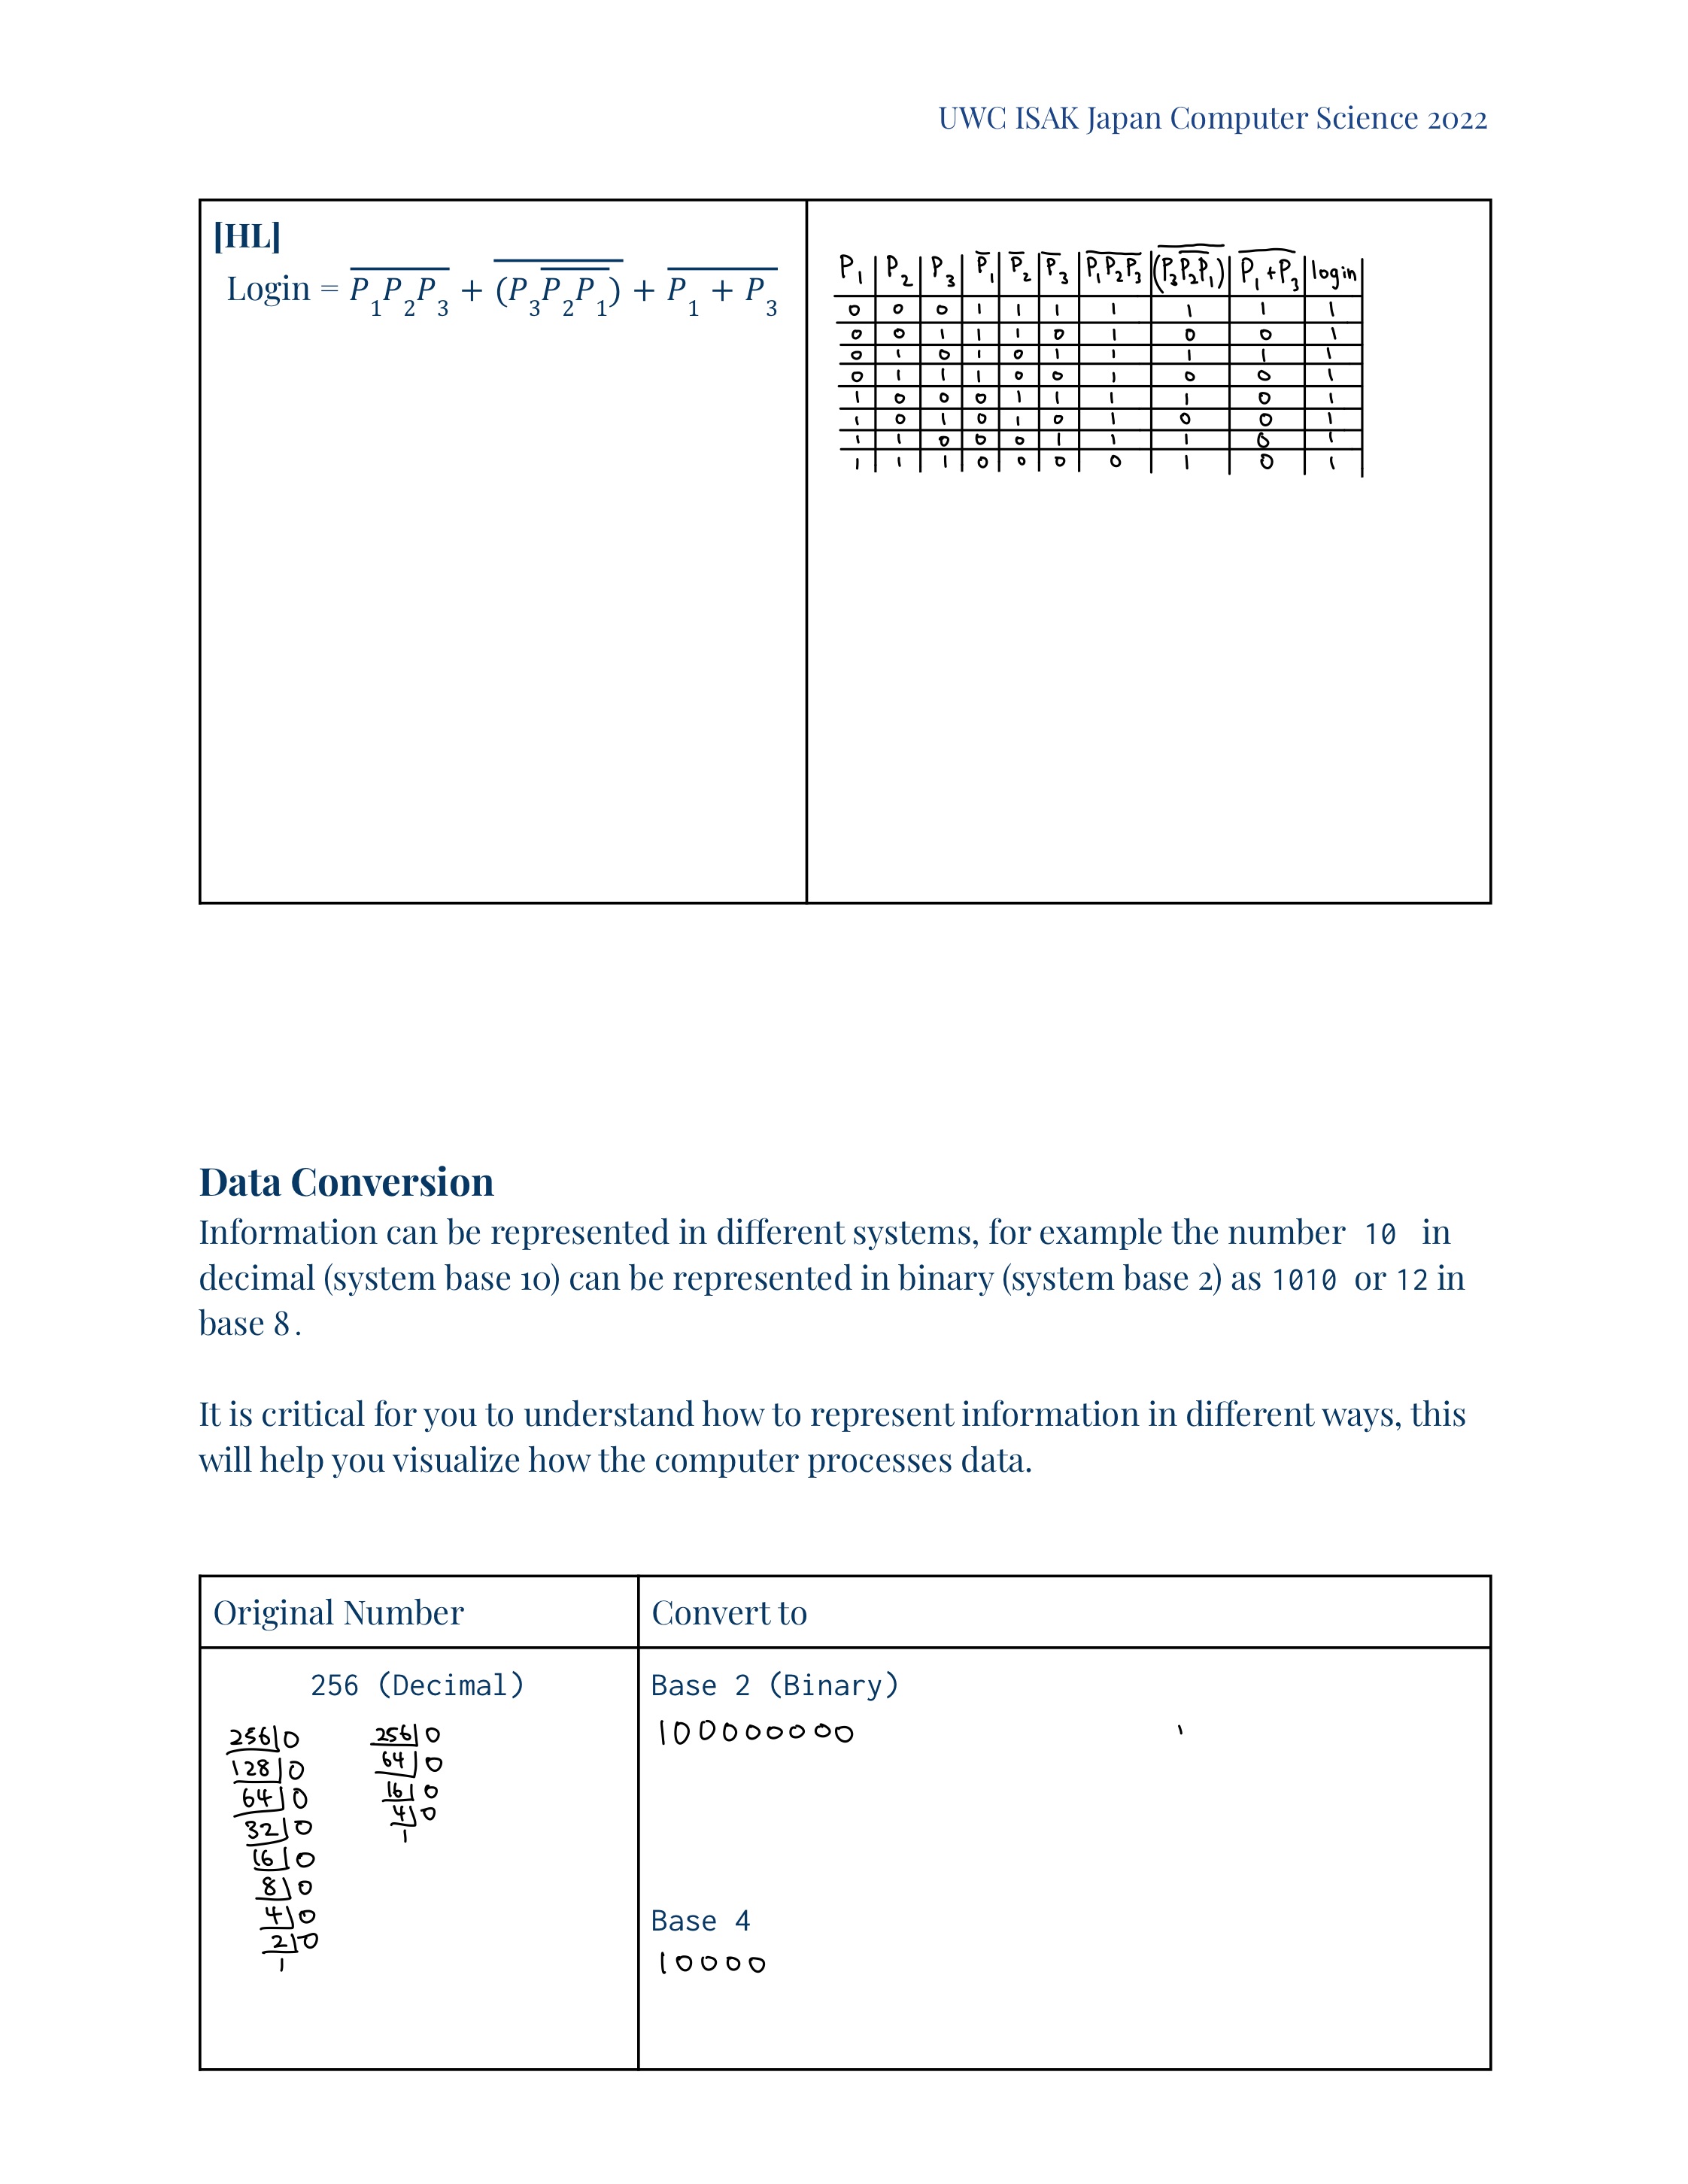 UWC ISAK Japan Computer Science 2022
[HL]
Login = \overline{P₁P₂P₃} + \overline{(P₃\overline{P₂P₁})} + \overline{P₁ + P₃}
P₁ P₂ P₃ P̅₁ P̅₂ P̅₃ \overline{P₁P₂P₃} \overline{(P₃\overline{P₂P₁})} \overline{P₁+P₃} login
0 0 0 1 1 1 1 1 1 1
0 0 1 1 1 0 1 0 0 1
0 1 0 1 0 1 1 1 1 1
0 1 1 1 0 0 1 0 0 1
1 0 0 0 1 1 1 1 0 1
1 0 1 0 1 0 1 0 0 1
1 1 0 0 0 1 1 1 0 1
1 1 1 0 0 0 0 1 0 1
Data Conversion
Information can be represented in different systems, for example the number 10 in
decimal (system base 10) can be represented in binary (system base 2) as 1010 or 12 in
base 8.
It is critical for you to understand how to represent information in different ways, this
will help you visualize how the computer processes data.
Original Number
Convert to
256 (Decimal)
256 0
128 0
64 0
32 0
16 0
8 0
4 0
2 0
1
256 0
64 0
16 0
4 0
1
Base 2 (Binary)
100000000
Base 4
10000